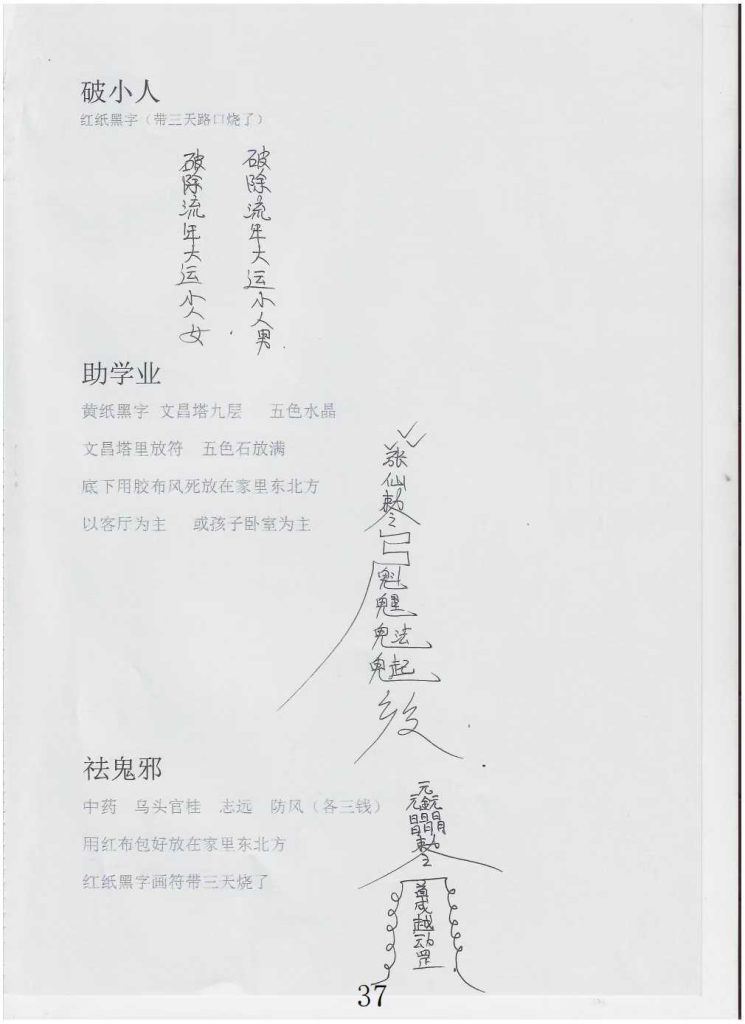 破小人
红纸黑字（带三天路口烧了）
破除流年大运小人男
破除流年大运小人女
助学业
黄纸黑字 文昌塔九层 五色水晶
文昌塔里放符 五色石放满
底下用胶布风死放在家里东北方
以客厅为主 或孩子卧室为主
张仙敕令
祛鬼邪
中药 乌头官桂 志远 防风（各三钱）
用红布包好放在家里东北方
红纸黑字画符带三天烧了
37